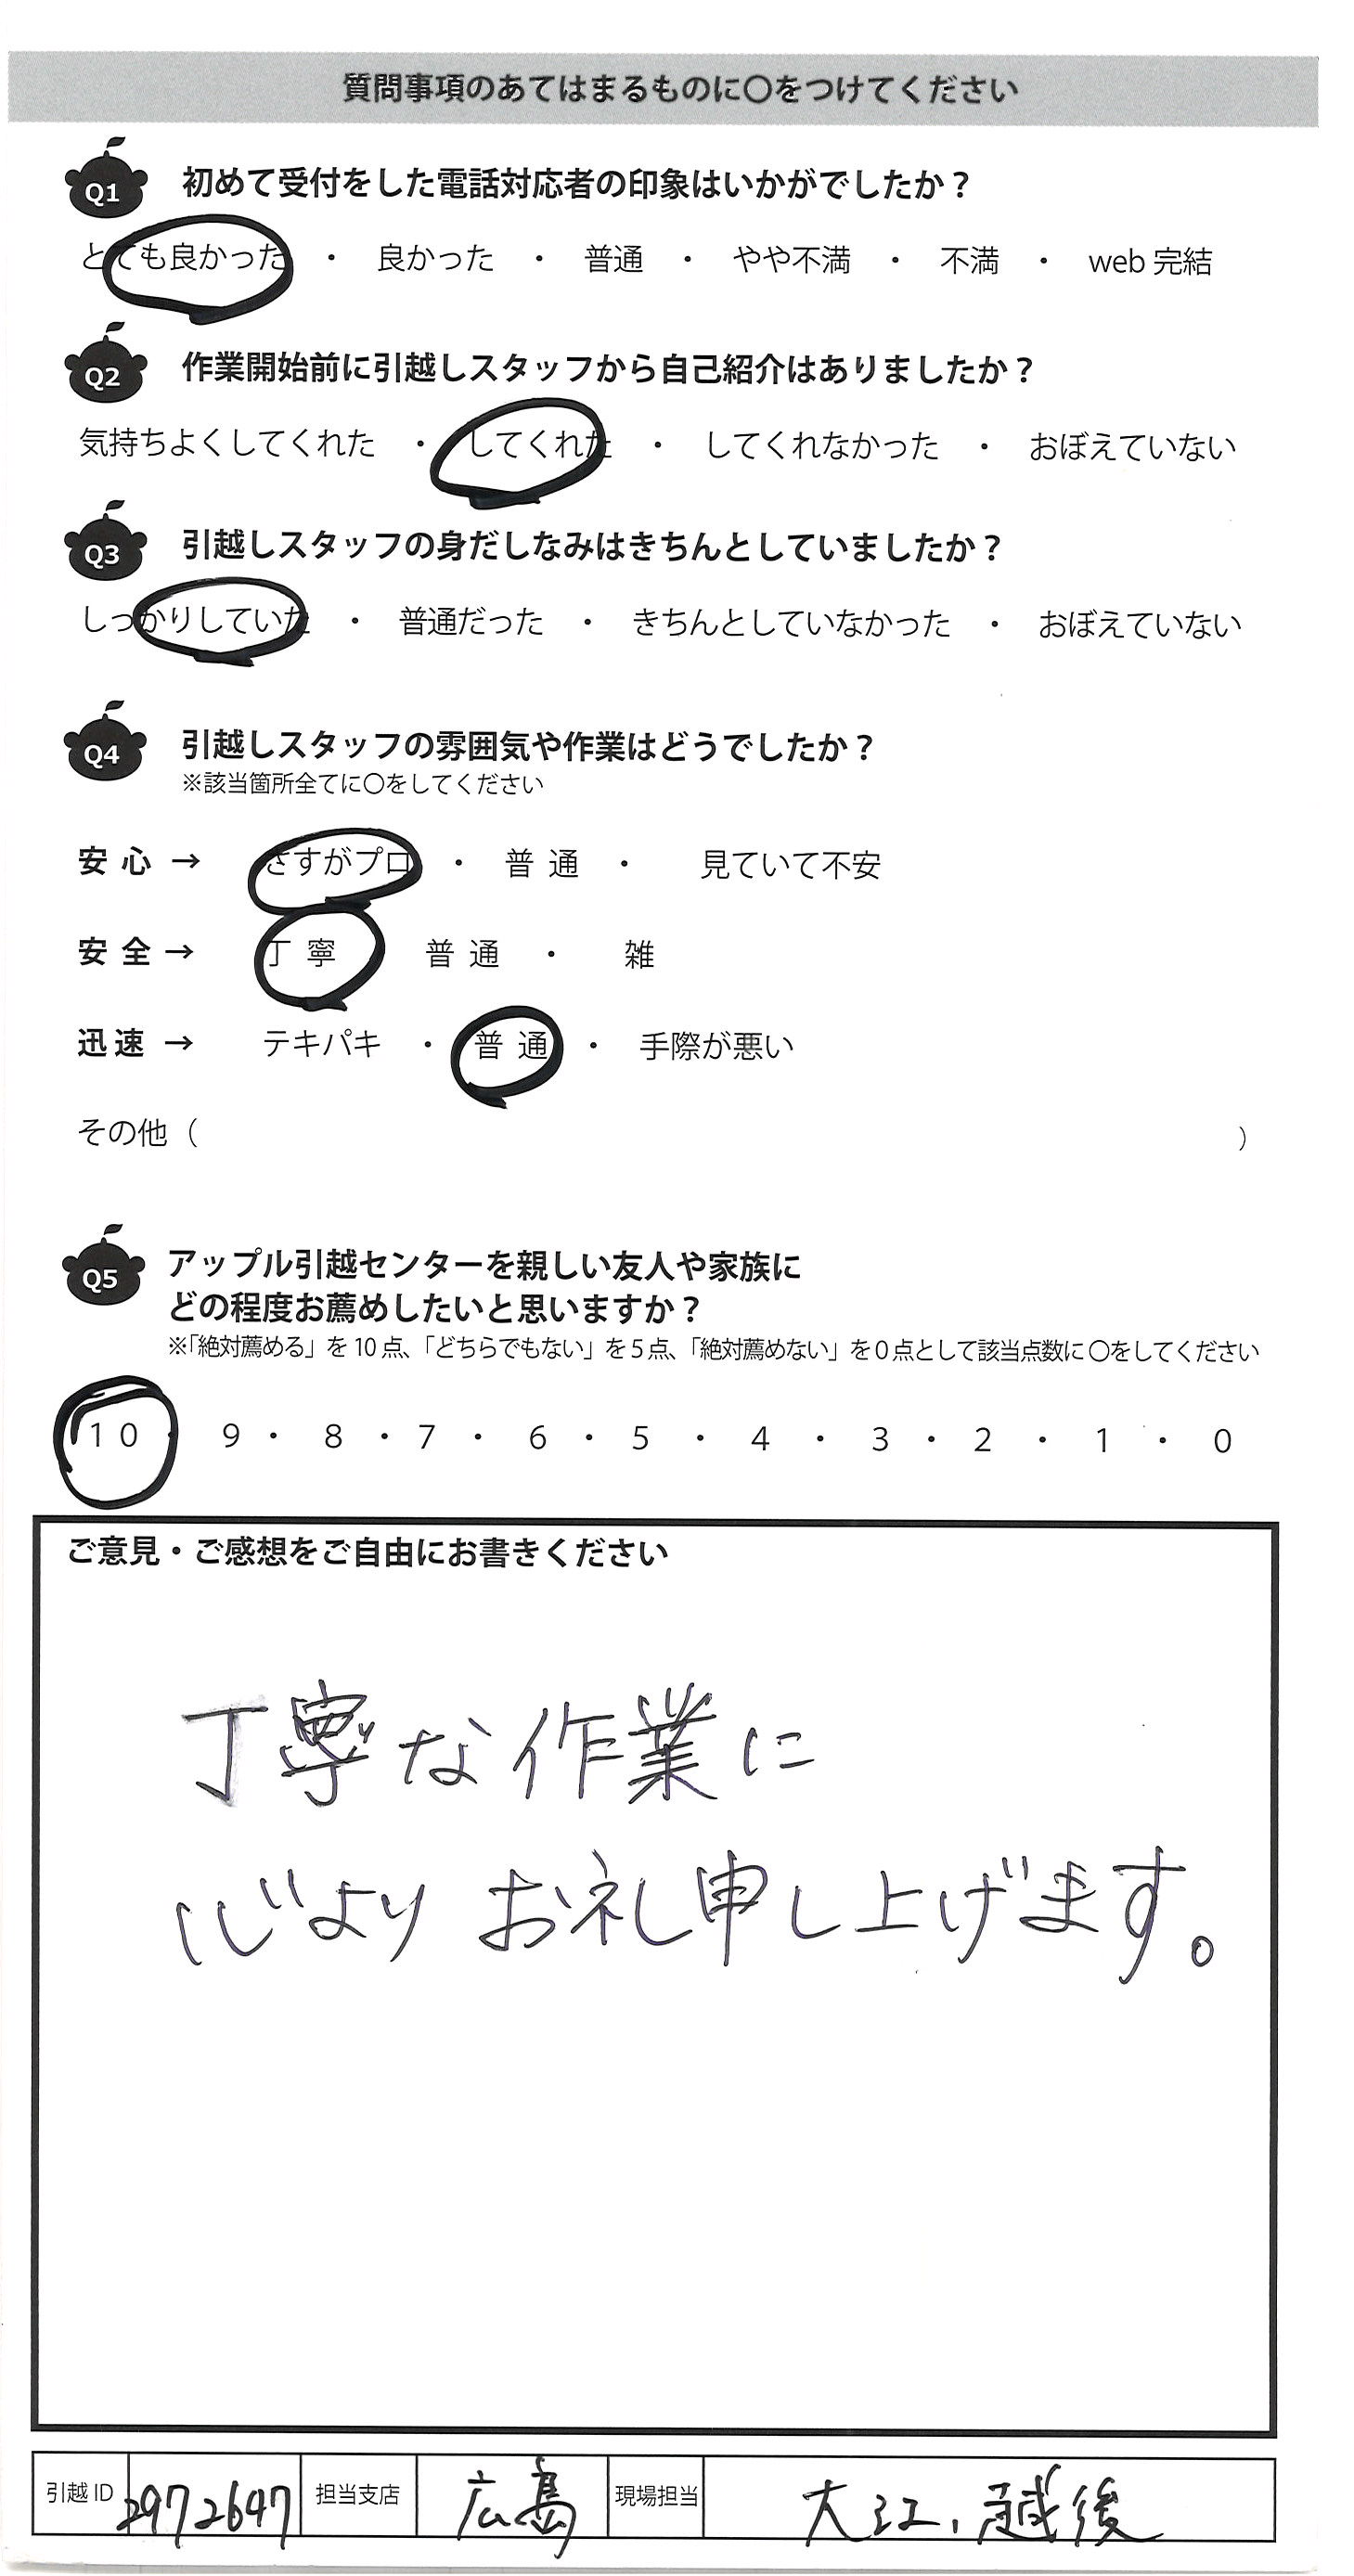 質問事項のあてはまるものに〇をつけてください
Q1 初めて受付をした電話対応者の印象はいかがでしたか？
とても良かった ・ 良かった ・ 普通 ・ やや不満 ・ 不満 ・ web 完結
Q2 作業開始前に引越しスタッフから自己紹介はありましたか？
気持ちよくしてくれた ・ してくれた ・ してくれなかった ・ おぼえていない
Q3 引越しスタッフの身だしなみはきちんとしていましたか？
しっかりしていた ・ 普通だった ・ きちんとしていなかった ・ おぼえていない
Q4 引越しスタッフの雰囲気や作業はどうでしたか？
※該当箇所全てに〇をしてください
安心 → さすがプロ ・ 普通 ・ 見ていて不安
安全 → 丁寧 普通 ・ 雑
迅速 → テキパキ ・ 普通 ・ 手際が悪い
その他（ ）
Q5 アップル引越センターを親しい友人や家族に
どの程度お薦めしたいと思いますか？
※「絶対薦める」を 10 点、「どちらでもない」を 5 点、「絶対薦めない」を 0 点として該当点数に 〇をしてください
10 9 ・ 8 ・ 7 ・ 6 ・ 5 ・ 4 ・ 3 ・ 2 ・ 1 ・ 0
ご意見・ご感想をご自由にお書きください
丁寧な作業に
心よりお礼申し上げます。
引越 ID 2972647 担当支店 広島 現場担当 大江、越後